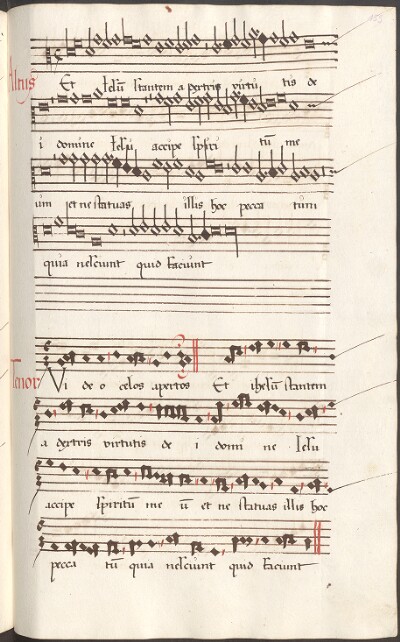 Altus
Et Ihesu᷎m stantem a dextris virtu tis de
i domine Ihesu accipe spiri tū me
um et ne statuas illis hoc pecca tum
quia nesciunt quid faciunt
Tenor
Vi de o celos apertos Et ihesū stantem
a dextris virtutis de i domi ne Ihesu
accipe spiritū me ū et ne statuas illis hoc
pecca tū quia nesciunt quid faciunt